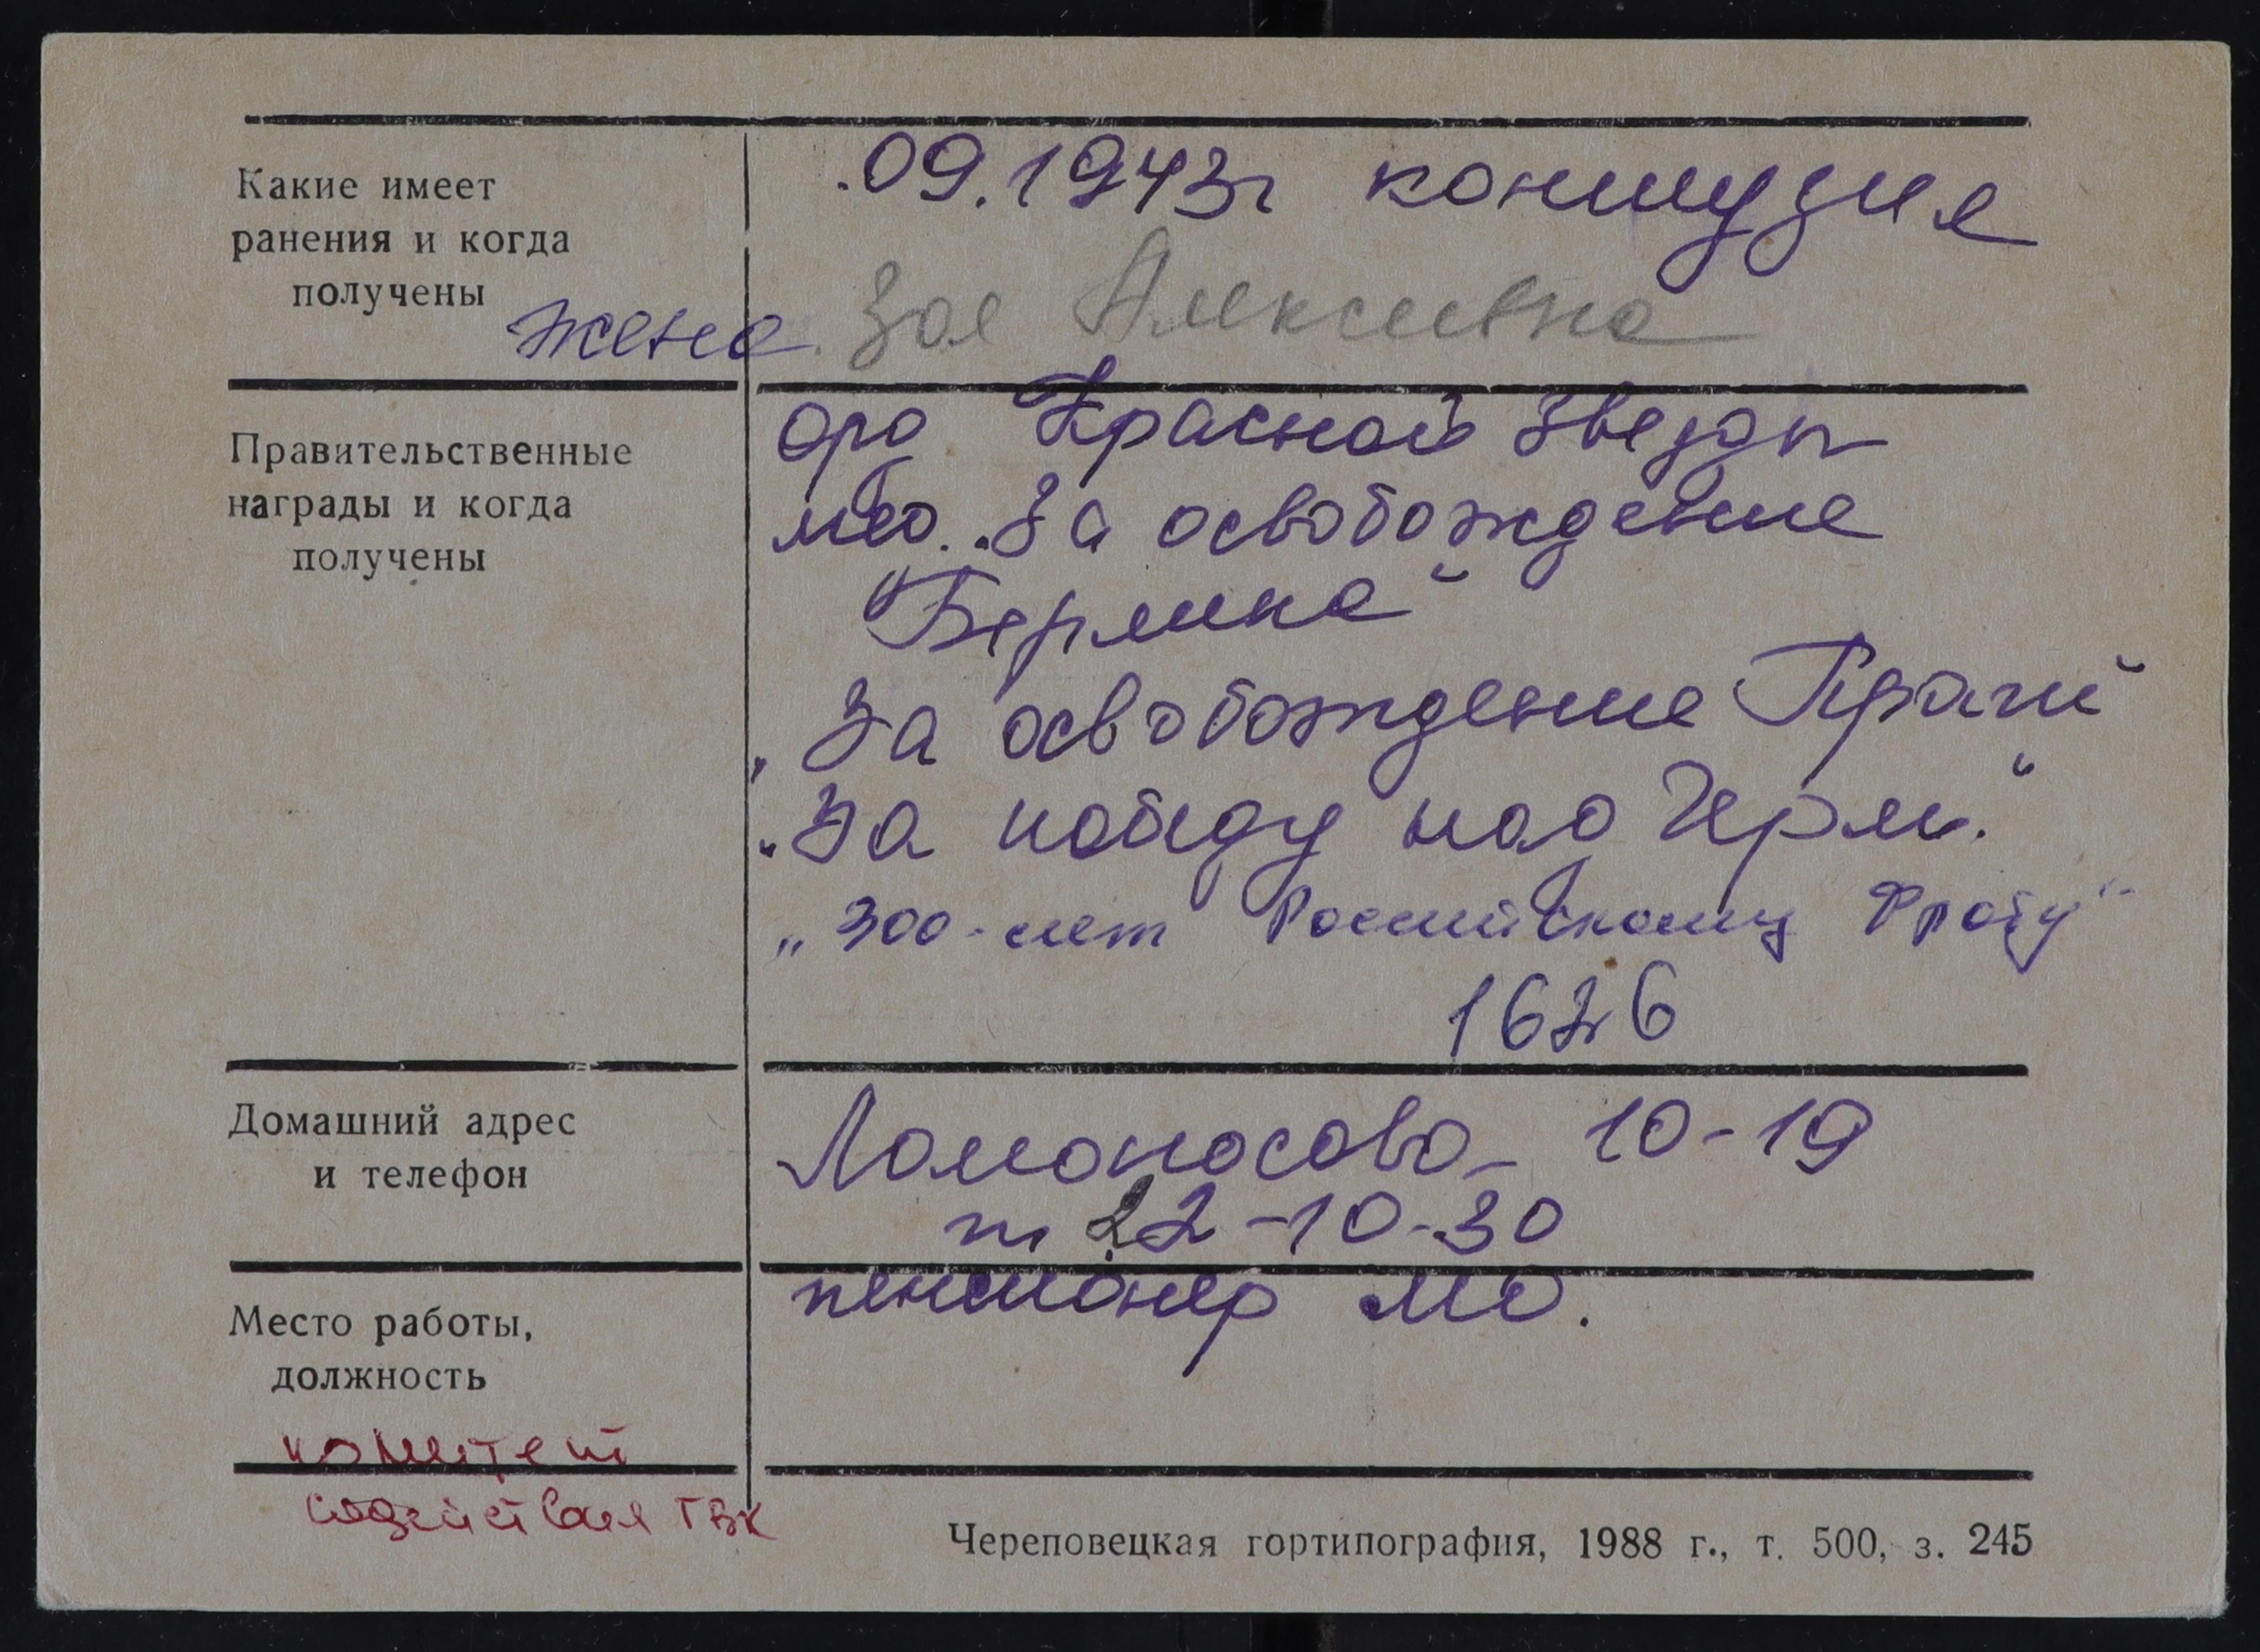 Какие имеет
ранения и когда
получены
.09.1943г контузия
жена Зоя Алексеевна
Правительственные
награды и когда
получены
орд Красной Звезды
мед. "За освобождение
Берлина"
"За освобождение Праги"
"За победу над Герм."
"300-лет Российскому Флоту"
1626
Домашний адрес
и телефон
Ломоносова- 10-19
т 22-10-30
Место работы,
должность
пенсионер МО.
комитет
содействия ГВК
Череповецкая гортипография, 1988 г., т. 500, з. 245